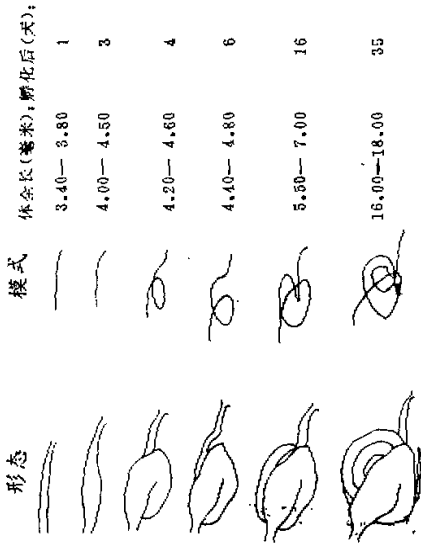 形态 模式 体全长(毫米); 孵化后(天);
3.40—3.80 1
4.00—4.50 3
4.20—4.60 4
4.40—4.80 6
5.50—7.00 16
16.00—18.00 35